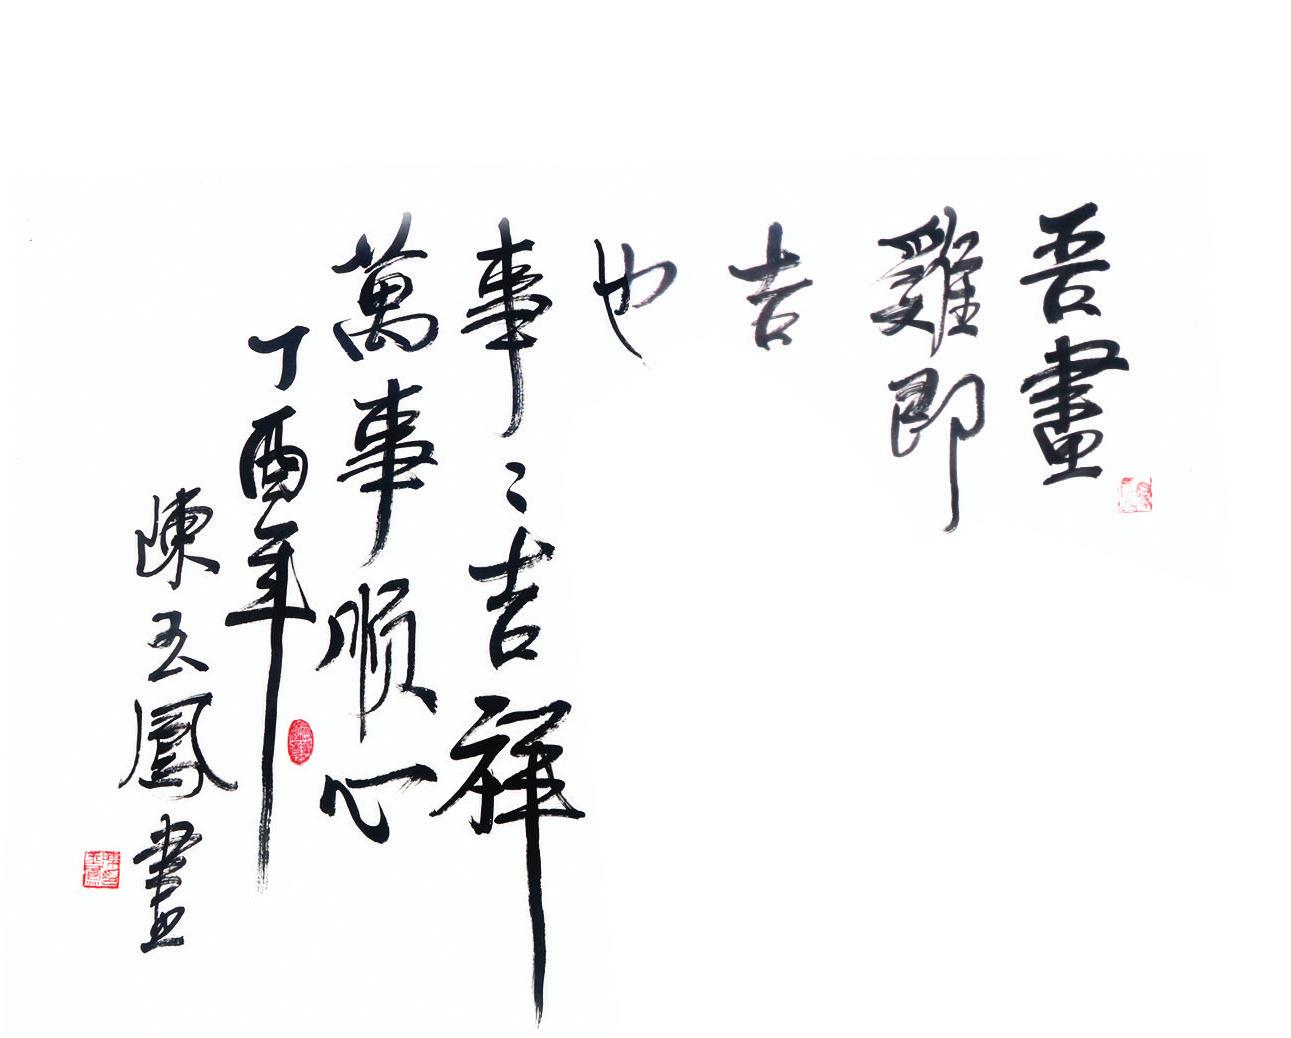 吾畫
雞即
吉
也
事〻吉祥
萬事順心
丁酉年
陳玉鳳畫